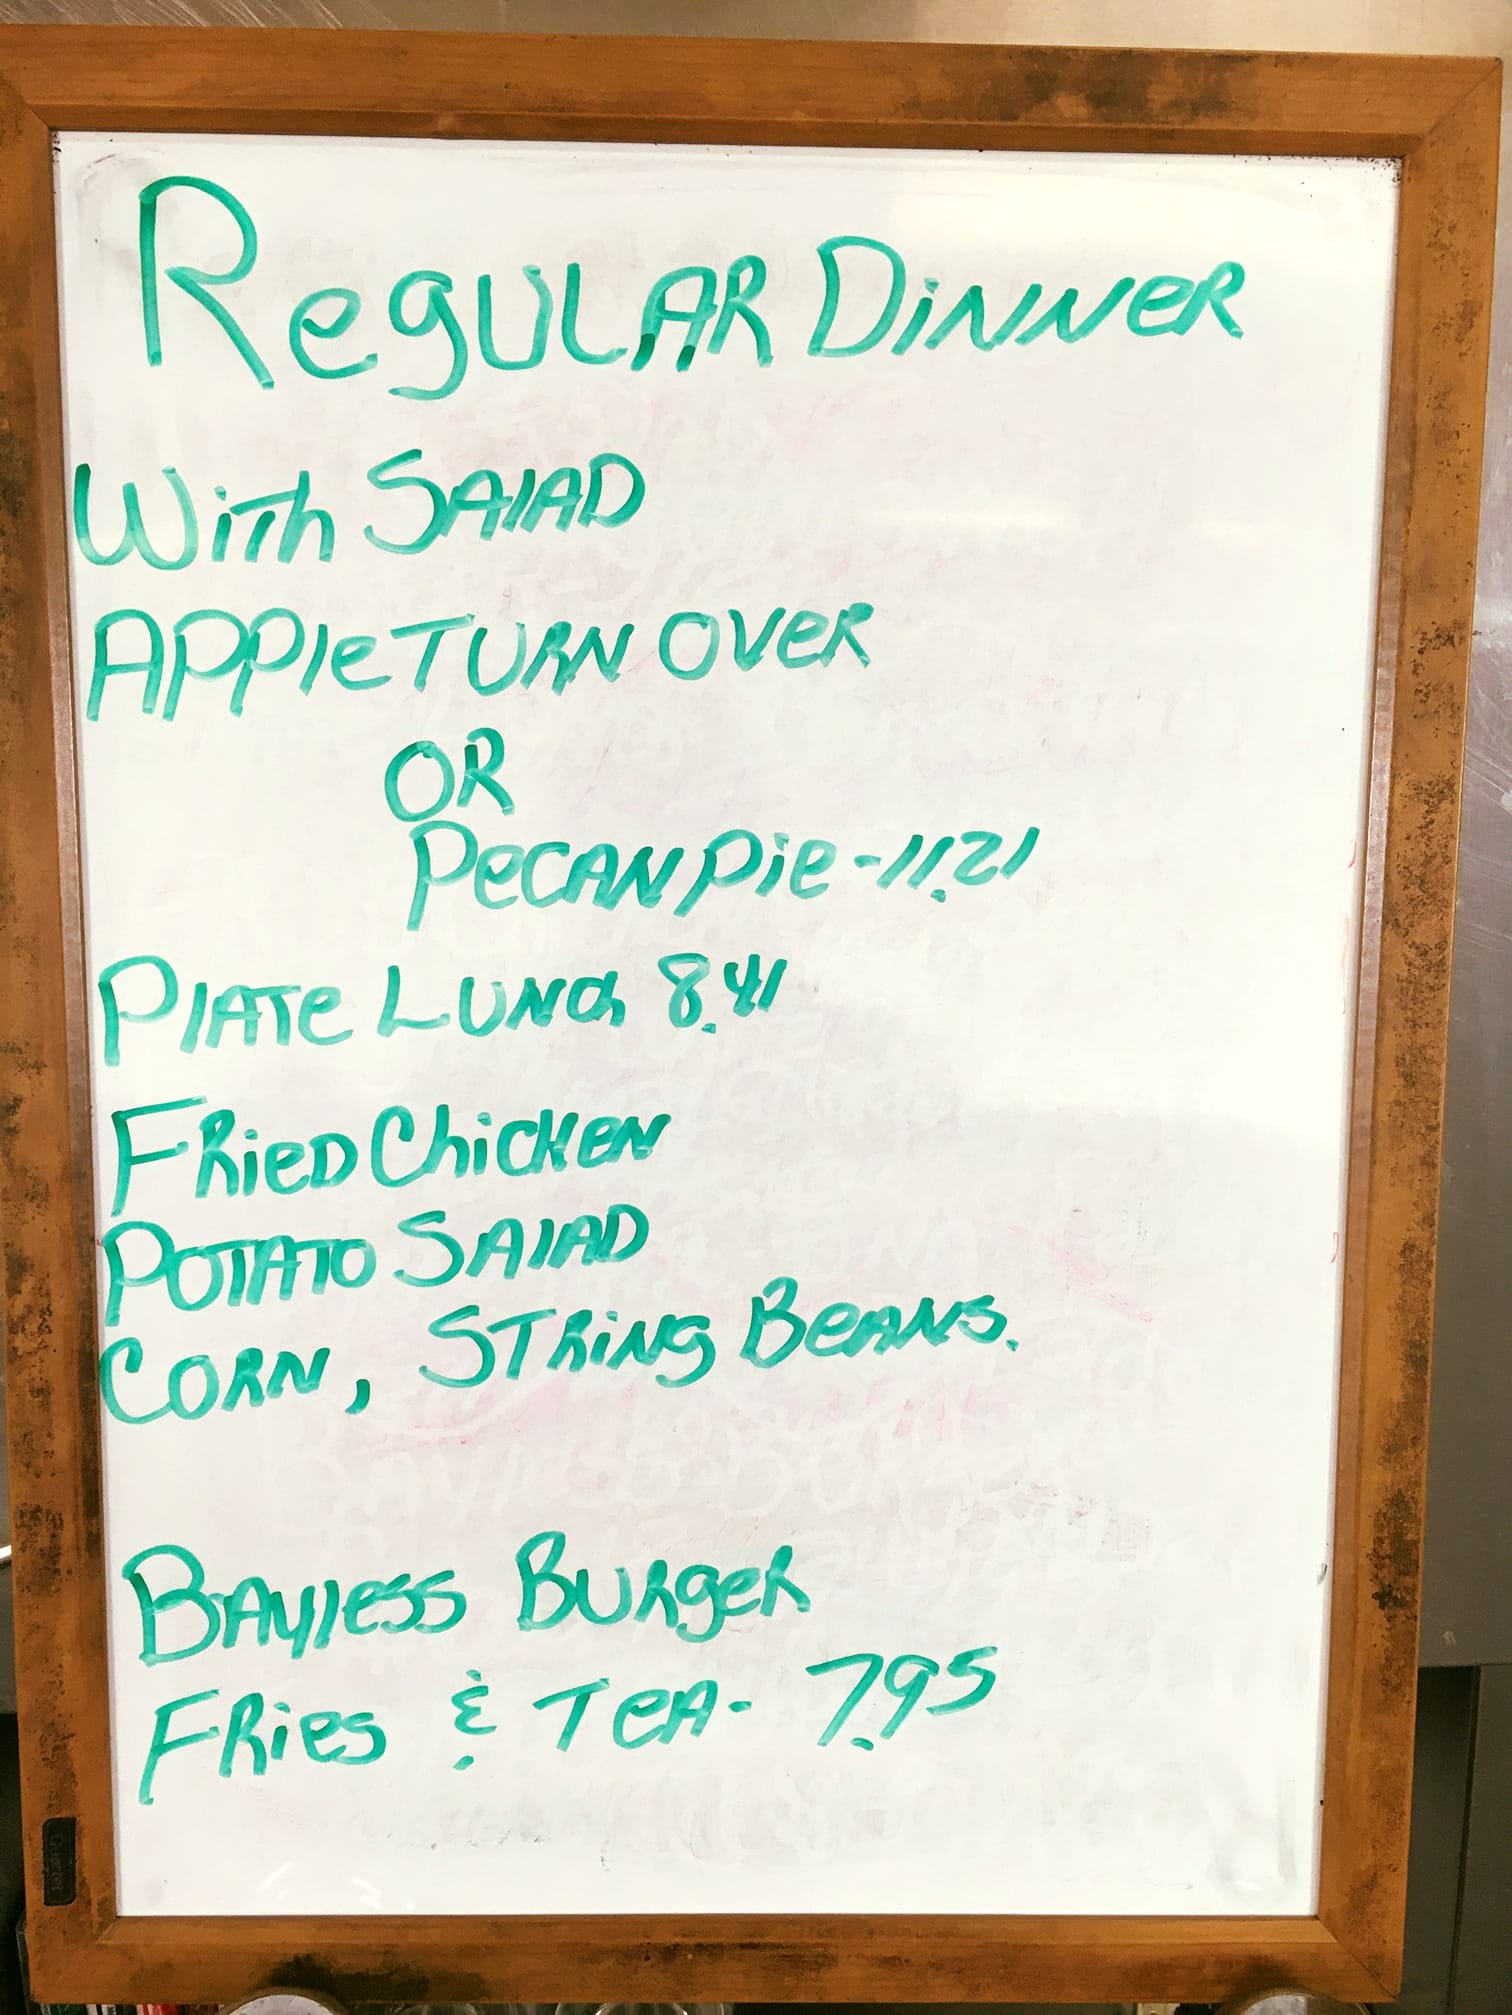 Regular Dinner
With Salad
Apple Turn Over
OR
Pecan Pie - 11.21
Plate Lunch 8.41
Fried Chicken
Potato Salad
Corn, String Beans.
Bayless Burger
Fries & Tea - 7.95
Quartet